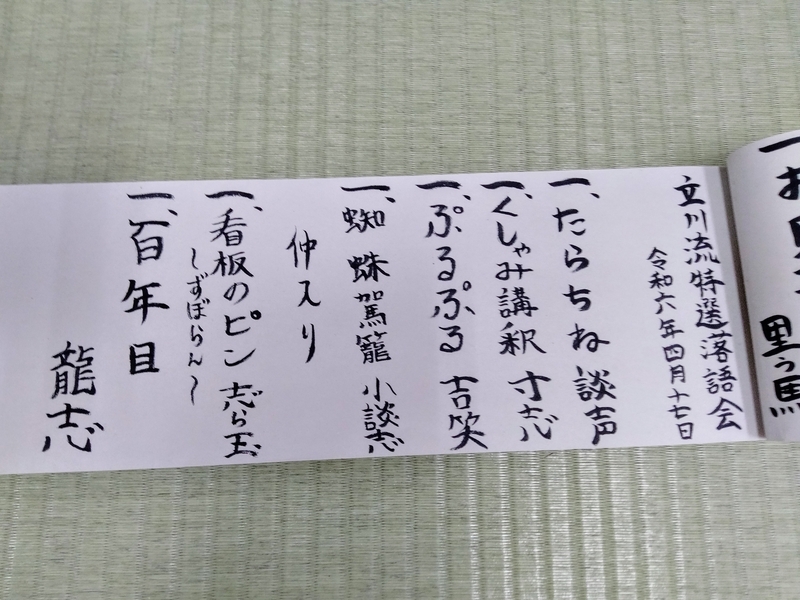 里う馬
立川流特選落語会
令和六年四月十七日
一、たらちね 談声
一、くしゃみ講釈 寸志
一、ぷるぷる 吉笑
一、蜘蛛駕籠 小談志
仲入り
一、看板のピン 志ら玉
〜しずぼらん〜
一、百年目
龍志